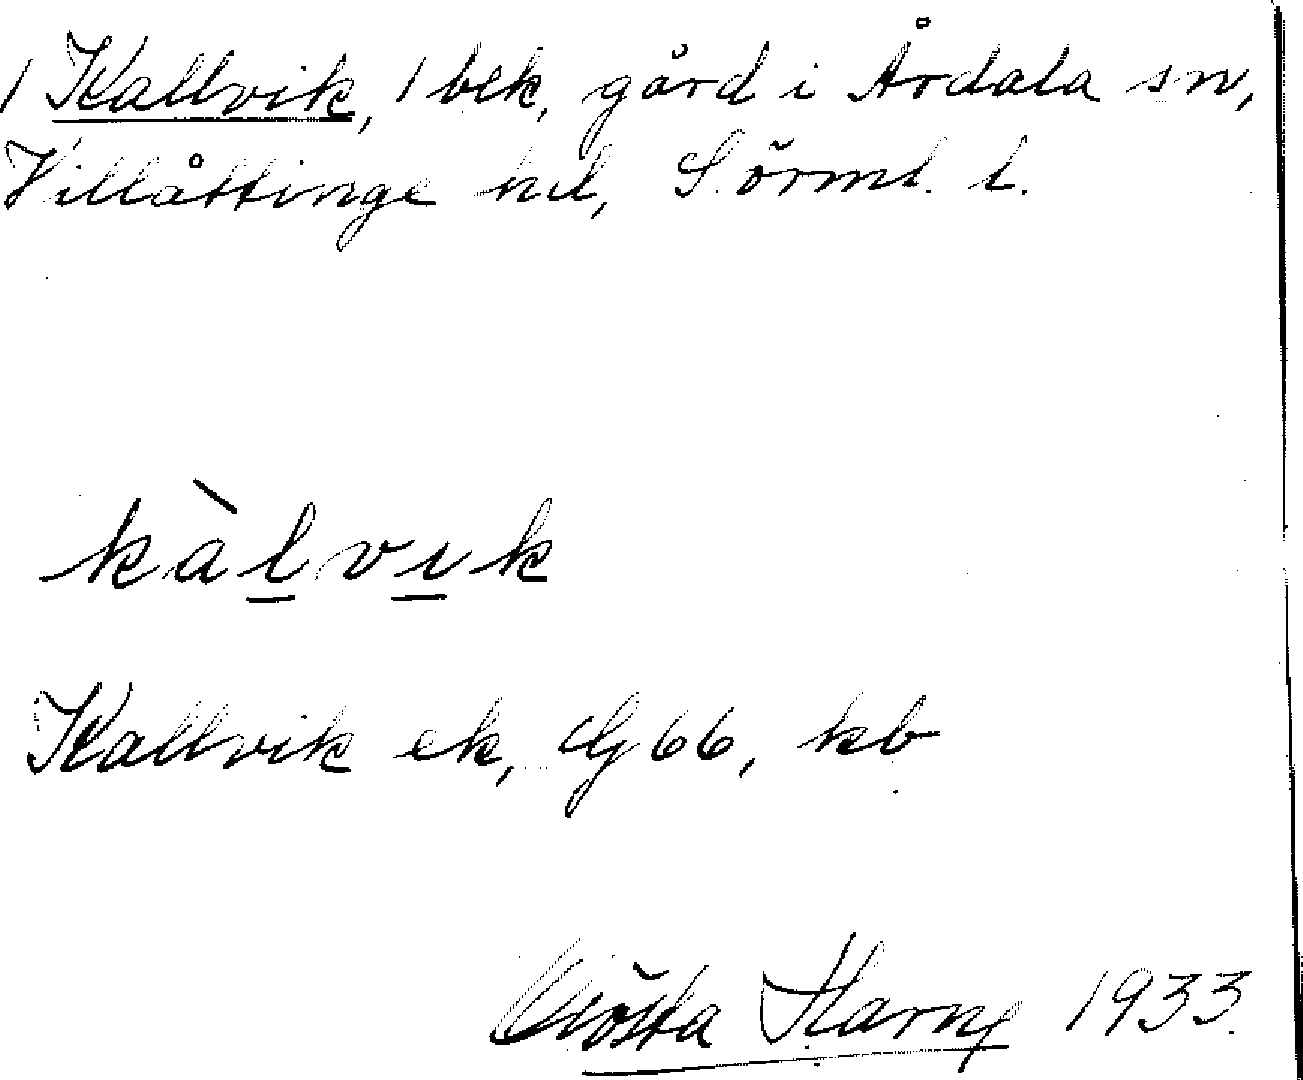 1 Kallvik, 1 blk, gård i Årdala sn,
Villåttinge hd, Sörml. l.
kàlvık
Kallvik ek, G 66, kb
Gösta 1933.